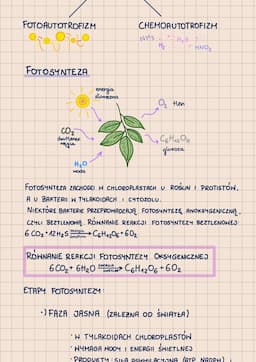 FOTOAUTOTROFIZM CHEMOAUTOTROFIZM
NH₃ H₂S
H₂ HNO₂
FOTOSYNTEZA
energia
słoneczna
O₂ tlen
CO₂
dwutlenek
węgla
C₆H₁₂O₆
glukoza
H₂O
woda
FOTOSYNTEZA ZACHODZI W CHLOROPLASTACH U ROŚLIN I PROTISTÓW,
A U BAKTERII W TYLAKOIDACH I CYTOZOLU.
NIEKTÓRE BAKTERIE PRZEPROWADZAJĄ FOTOSYNTEZĘ ANOKSYGENICZNĄ,
CZYLI BEZTLENOWĄ. RÓWNANIE REAKCJI FOTOSYNTEZY BEZTLENOWEJ:
6 CO₂ + 12H₂S → C₆H₁₂O₆ + 6O₂
RÓWNANIE REAKCJI FOTOSYNTEZY OKSYGENICZNEJ
6CO₂ + 6H₂O → C₆H₁₂O₆ + 6O₂
ETAPY FOTOSYNTEZY:
·1) FAZA JASNA (ZALEŻNA OD ŚWIATŁA)
· W TYLAKOIDACH CHLOROPLASTÓW
· WYMAGA WODY I ENERGII ŚWIETLNEJ
· PRODUKTY: SIŁA ASYMILACYJNA (ATP, NADPH)